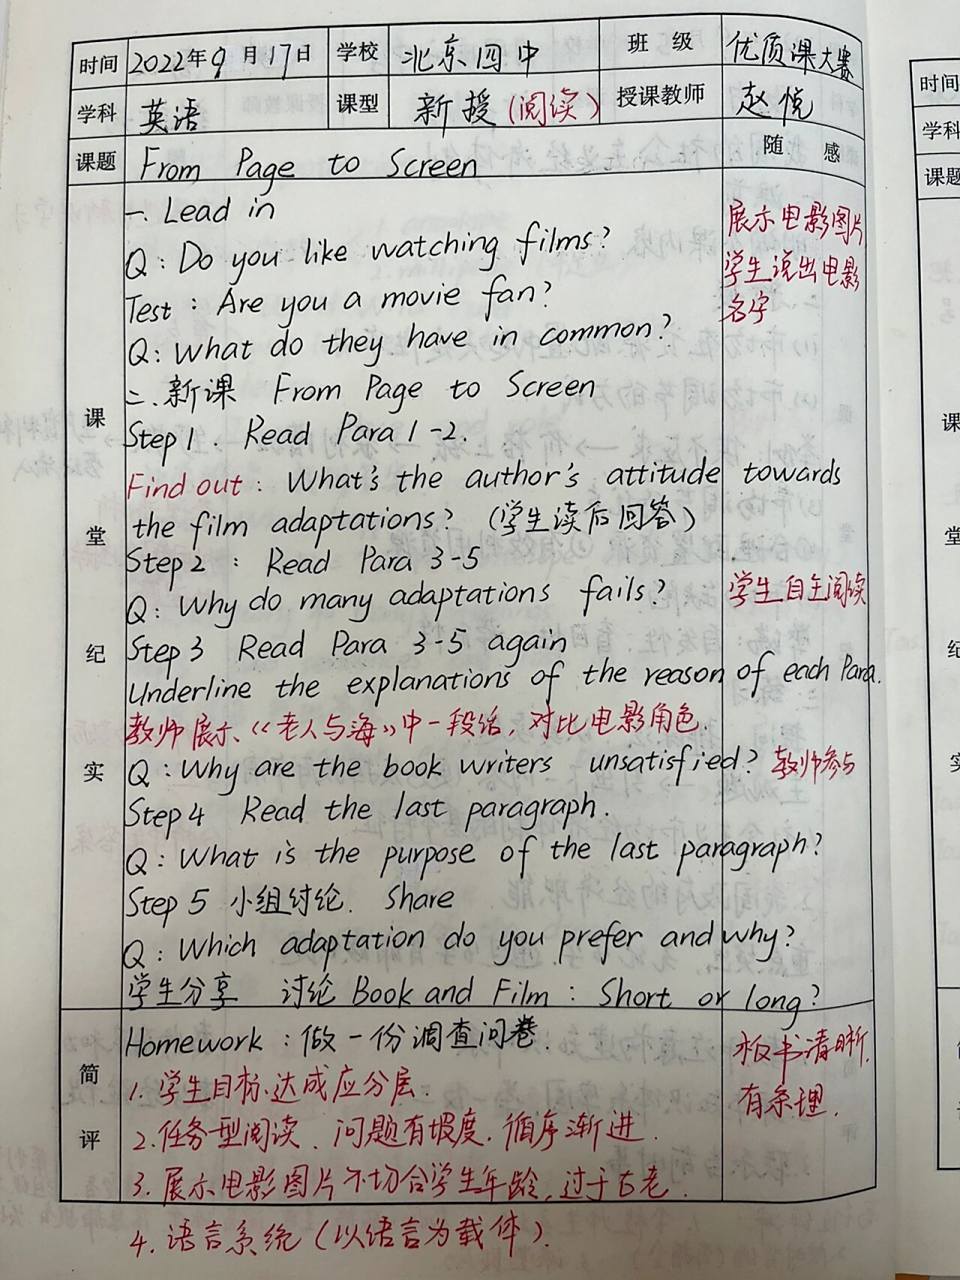 时间 2022年9月17日 学校 北京四中 班级 优质课大赛
学科 英语 课型 新授(阅读) 授课教师 赵悦
课题 From Page to Screen 随感
课堂纪实
一. Lead in
Q: Do you like watching films?
Test: Are you a movie fan?
Q: What do they have in common?
展示电影图片
学生说出电影
名字
二.新课 From Page to Screen
Step 1. Read Para 1-2.
Find out: What's the author's attitude towards
the film adaptations? (学生读后回答)
Step 2: Read Para 3-5
Q: Why do many adaptations fails? 学生自主阅读
Step 3 Read Para 3-5 again
Underline the explanations of the reason of each Para.
教师展示《老人与海》中一段话,对比电影角色.
Q: Why are the book writers unsatisfied? 教师参与
Step 4 Read the last paragraph.
Q: What is the purpose of the last paragraph?
Step 5 小组讨论. Share
Q: Which adaptation do you prefer and why?
学生分享 讨论 Book and Film: Short or long?
简评
Homework: 做一份调查问卷.
1. 学生目标达成应分层.
2. 任务型阅读、问题有坡度.循序渐进.
3. 展示电影图片不切合学生年龄,过于古老.
4. 语言系统(以语言为载体).
板书清晰.
有条理.
时间
学科
课题